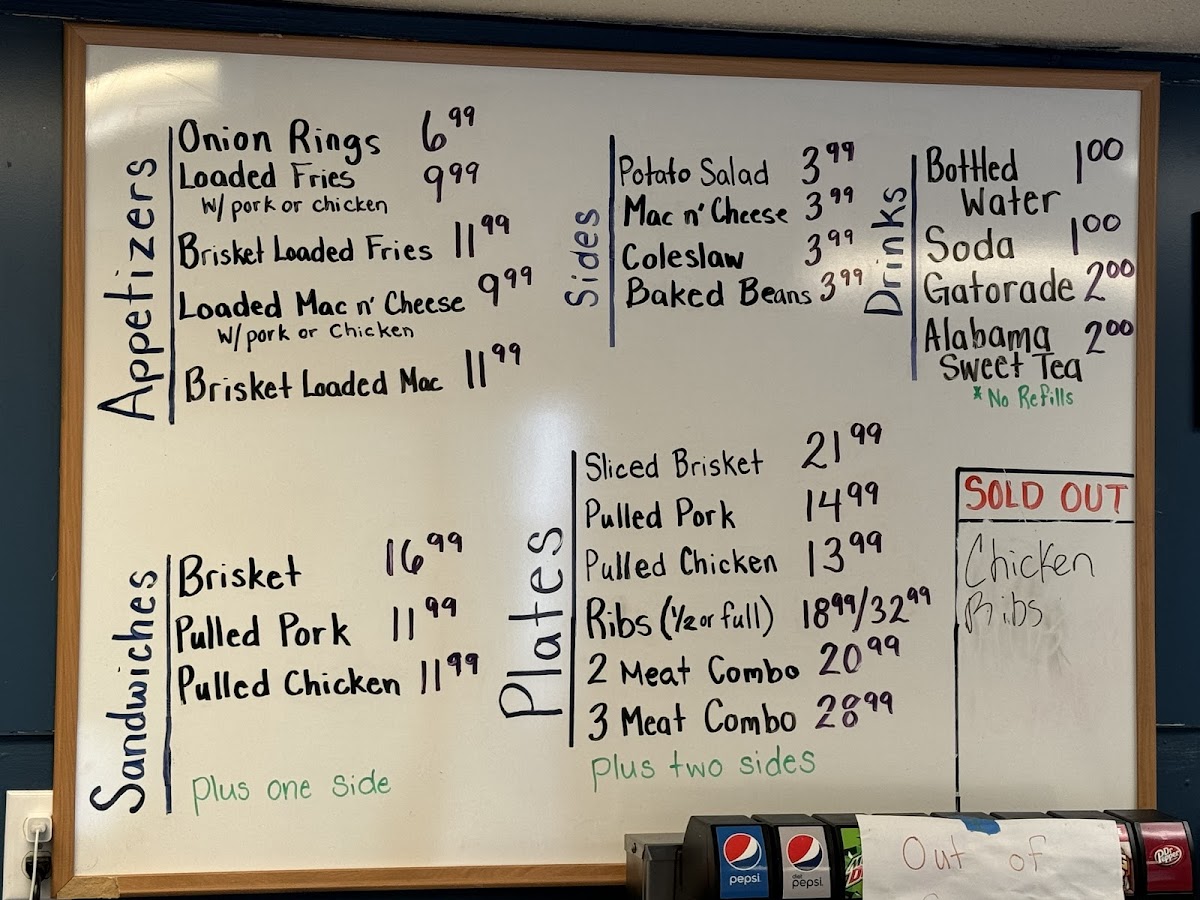 Appetizers
Onion Rings 6.99
Loaded Fries 9.99
w/ pork or chicken
Brisket Loaded Fries 11.99
Loaded Mac n' Cheese 9.99
w/ pork or Chicken
Brisket Loaded Mac 11.99
Sides
Potato Salad 3.99
Mac n' Cheese 3.99
Coleslaw 3.99
Baked Beans 3.99
Drinks
Bottled 1.00
Water
Soda 1.00
Gatorade 2.00
Alabama 2.00
Sweet Tea
*No Refills
Sandwiches
Brisket 16.99
Pulled Pork 11.99
Pulled Chicken 11.99
plus one side
Plates
Sliced Brisket 21.99
Pulled Pork 14.99
Pulled Chicken 13.99
Ribs (1/2 or full) 18.99/32.99
2 Meat Combo 20.99
3 Meat Combo 28.99
plus two sides
SOLD OUT
Chicken
Ribs
pepsi
diet
pepsi
Out of
Dr Pepper